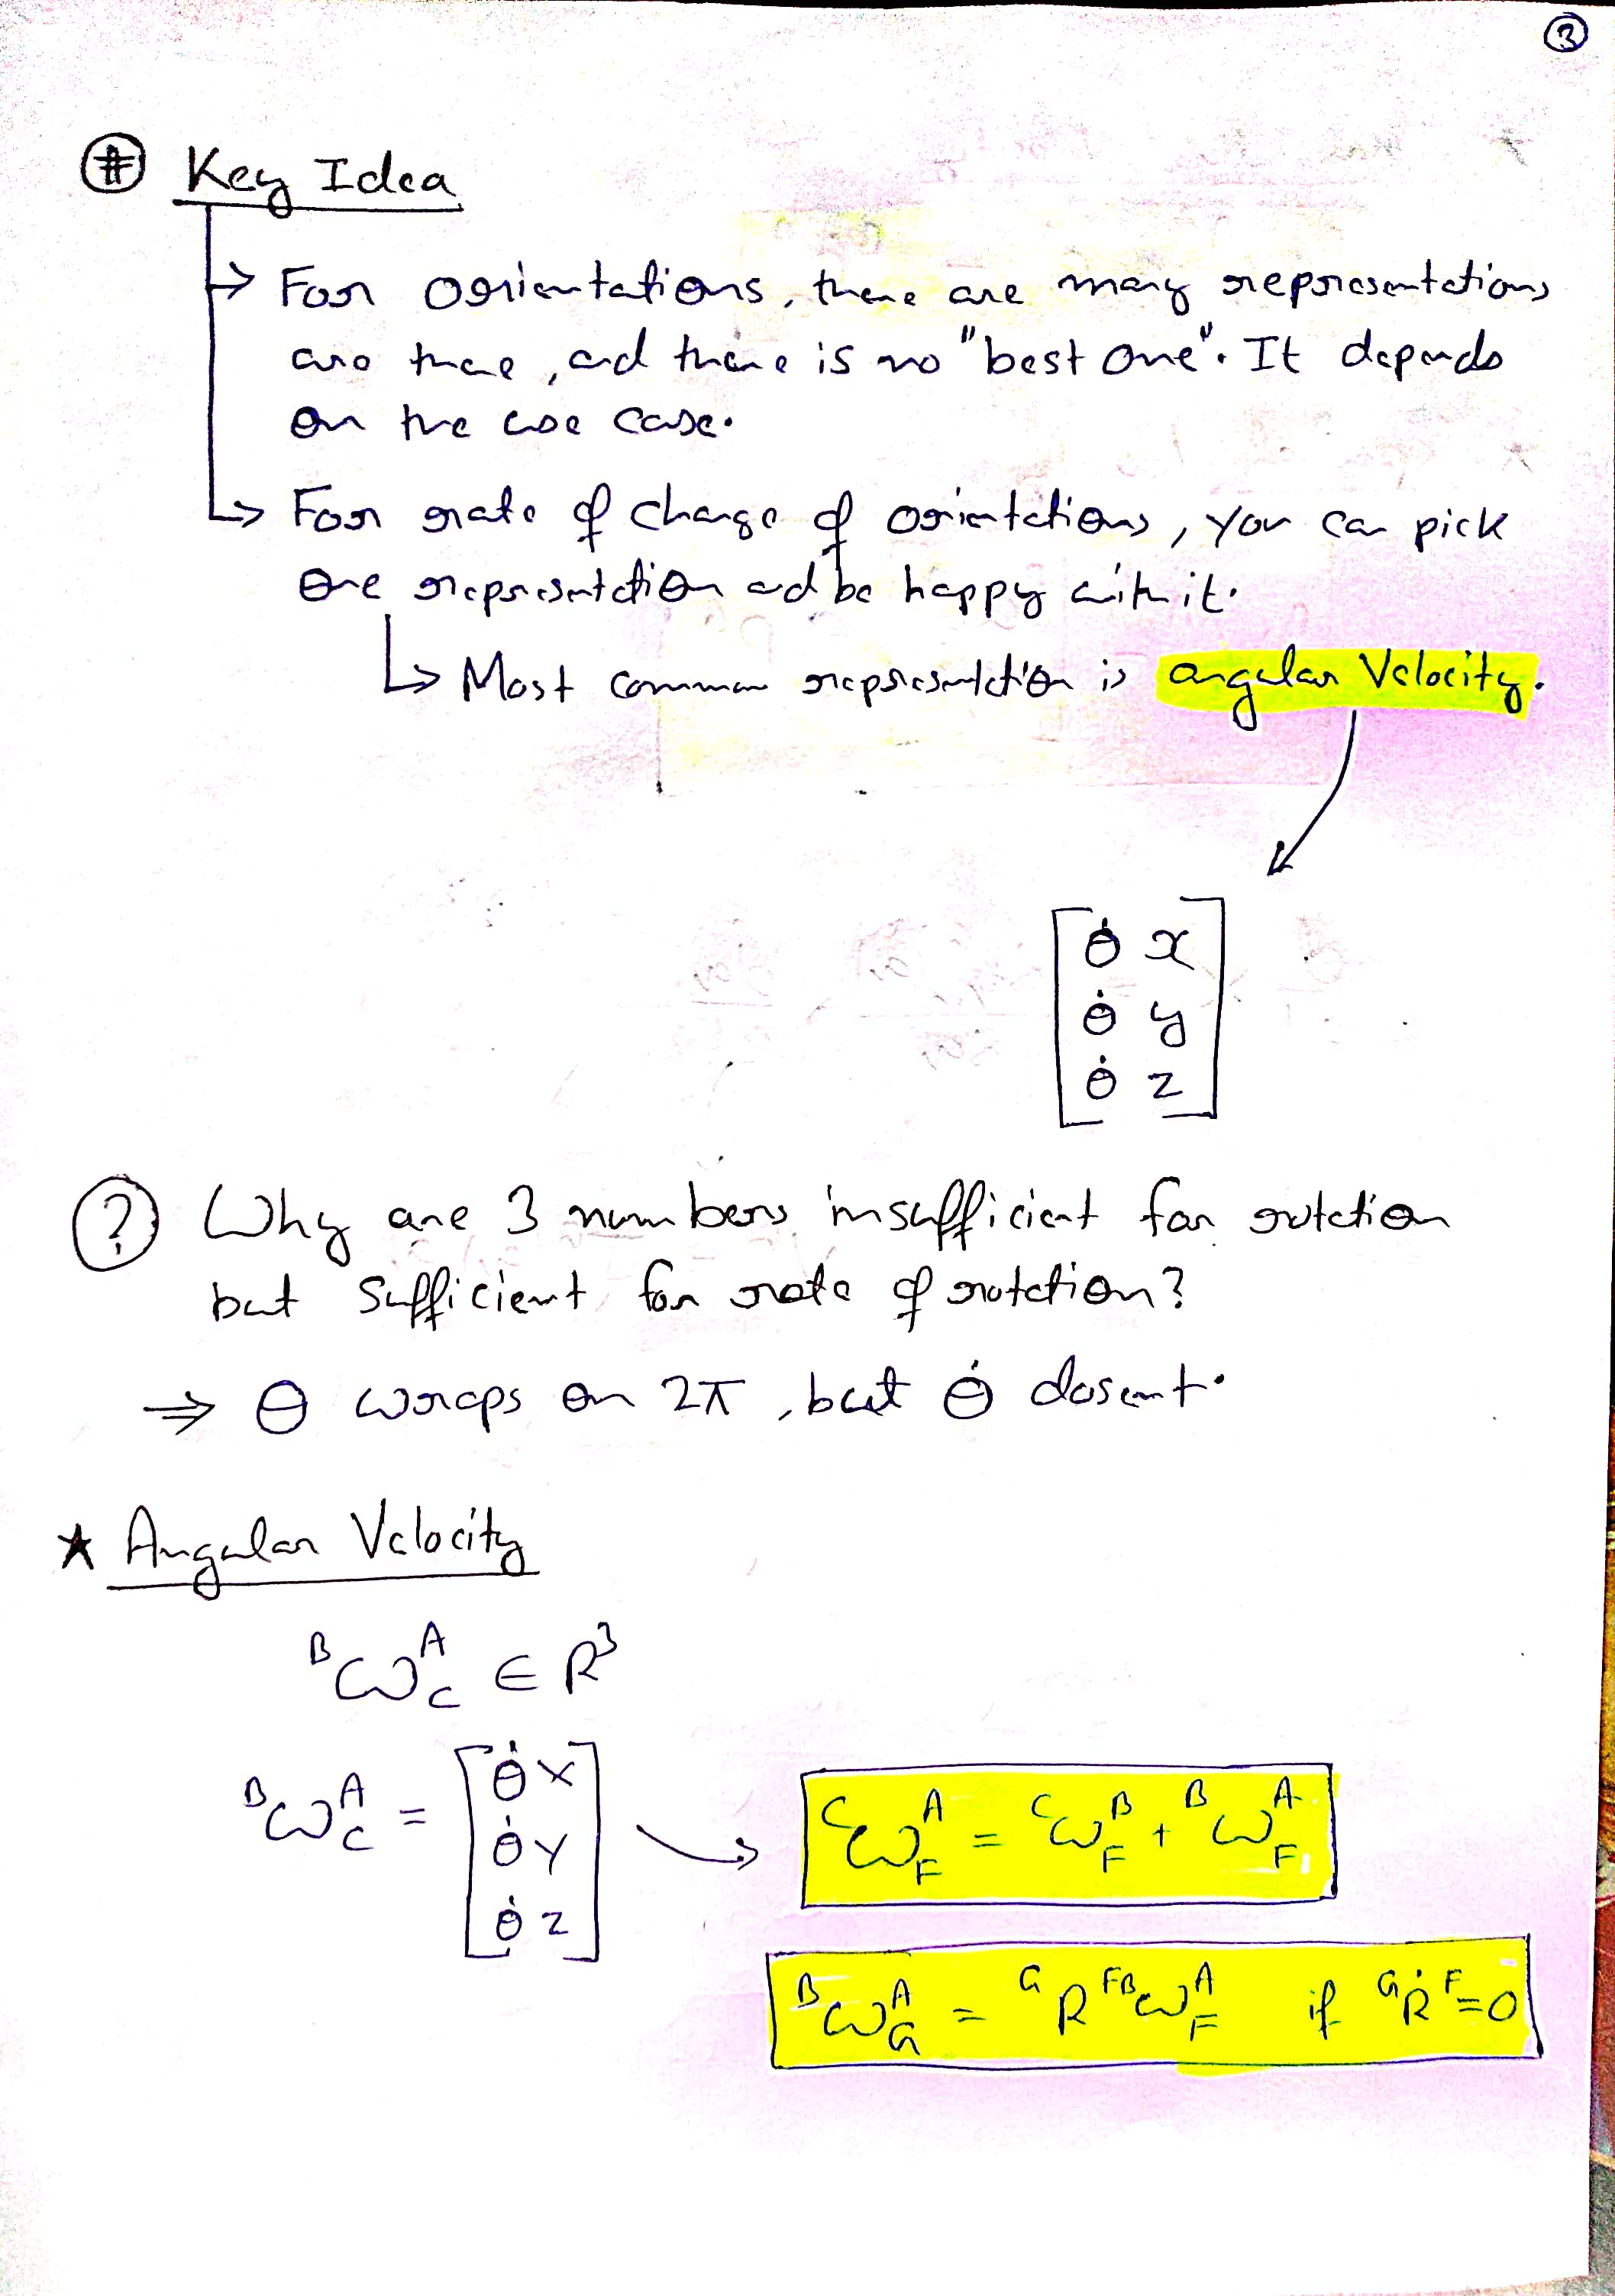 ③
# Key Idea
↳ For orientations, there are many representations
are there, and there is no "best one". It depends
on the use case.
↳ For rate of change of orientations, you can pick
one representation and be happy with it.
↳ Most common representation is angular Velocity.
[θ̇ x
θ̇ y
θ̇ z]
? Why are 3 numbers insufficient for rotation
but sufficient for rate of rotation?
⇒ θ wraps on 2π, but θ̇ dosent.
★ Angular Velocity
ᴮω^A_C ∈ R³
ᴮω^A_C = [θ̇ X
θ̇ Y
θ̇ Z] → ^Cω^A_F = ^Cω^B_F + ^Bω^A_F
^Bω^A_G = ^G R^F ^Bω^A_F if ^GṘ^F = 0